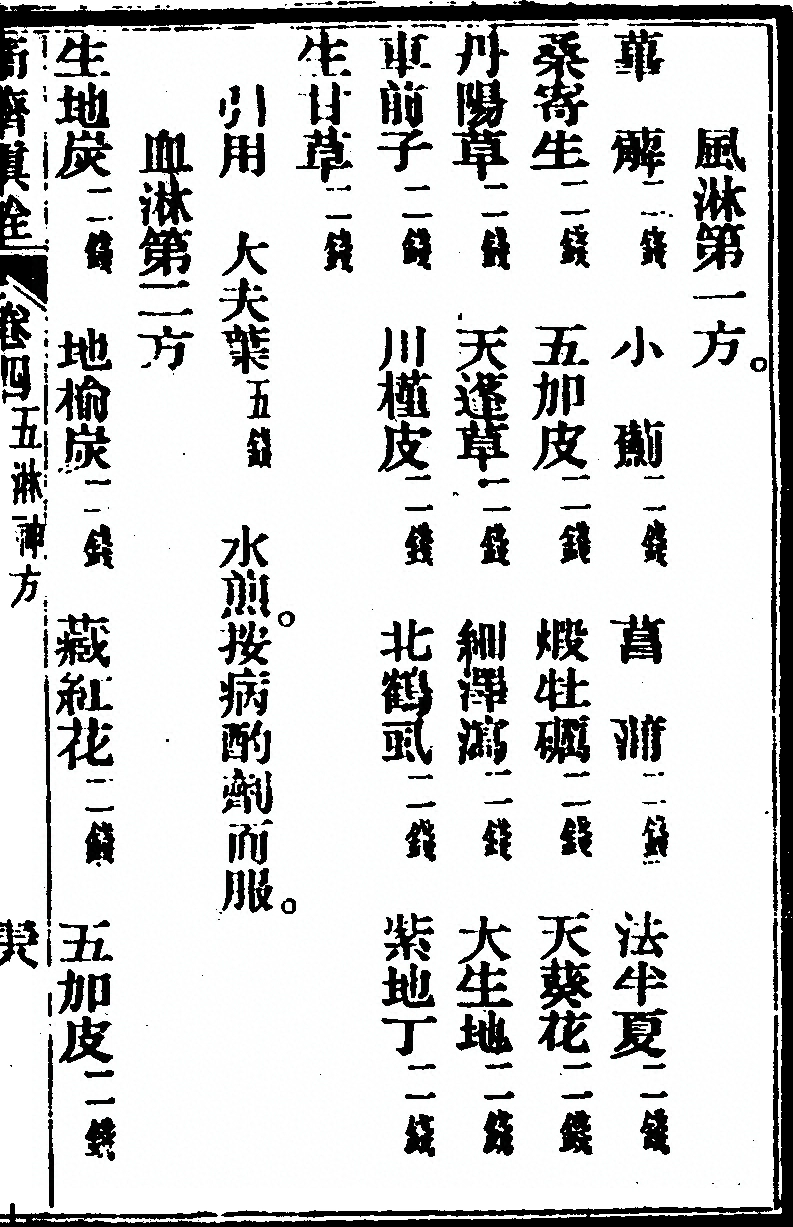 風淋第一方。
萆薢二錢　小薊二錢　菖蒲二錢　法半夏二錢
桑寄生二錢　五加皮二錢　煅牡礪二錢　天葵花二錢
丹陽草二錢　天蓬草二錢　細澤瀉二錢　大生地二錢
車前子二錢　川槿皮二錢　北鶴虱二錢　紫地丁二錢
生甘草二錢
引用　大夫葉五錢　水煎。按病酌劑而服。
血淋第二方
生地炭二錢　地榆炭二錢　藏紅花二錢　五加皮二錢
卷四　五淋神方